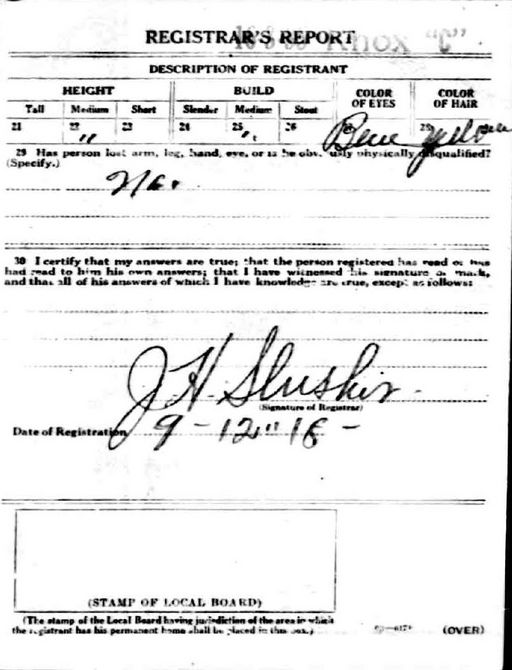 REGISTRAR'S REPORT
Knox "C"
DESCRIPTION OF REGISTRANT
HEIGHT BUILD COLOR OF EYES COLOR OF HAIR
Tall Medium Short Slender Medium Stout
21 22 " 23 24 25 " 26 29
29 Has person lost arm, leg, hand, eye, or is he obv. usly physically disqualified?
(Specify.)
No.
30 I certify that my answers are true; that the person registered has read or has
had read to him his own answers; that I have witnessed his signature or mark,
and that all of his answers of which I have knowledge are true, except as follows:
J H Slusher
(Signature of Registrar)
Date of Registration 9-12"18-
(STAMP OF LOCAL BOARD)
(The stamp of the Local Board having jurisdiction of the area in which
the registrant has his permanent home shall be placed in this box.)
(OVER)